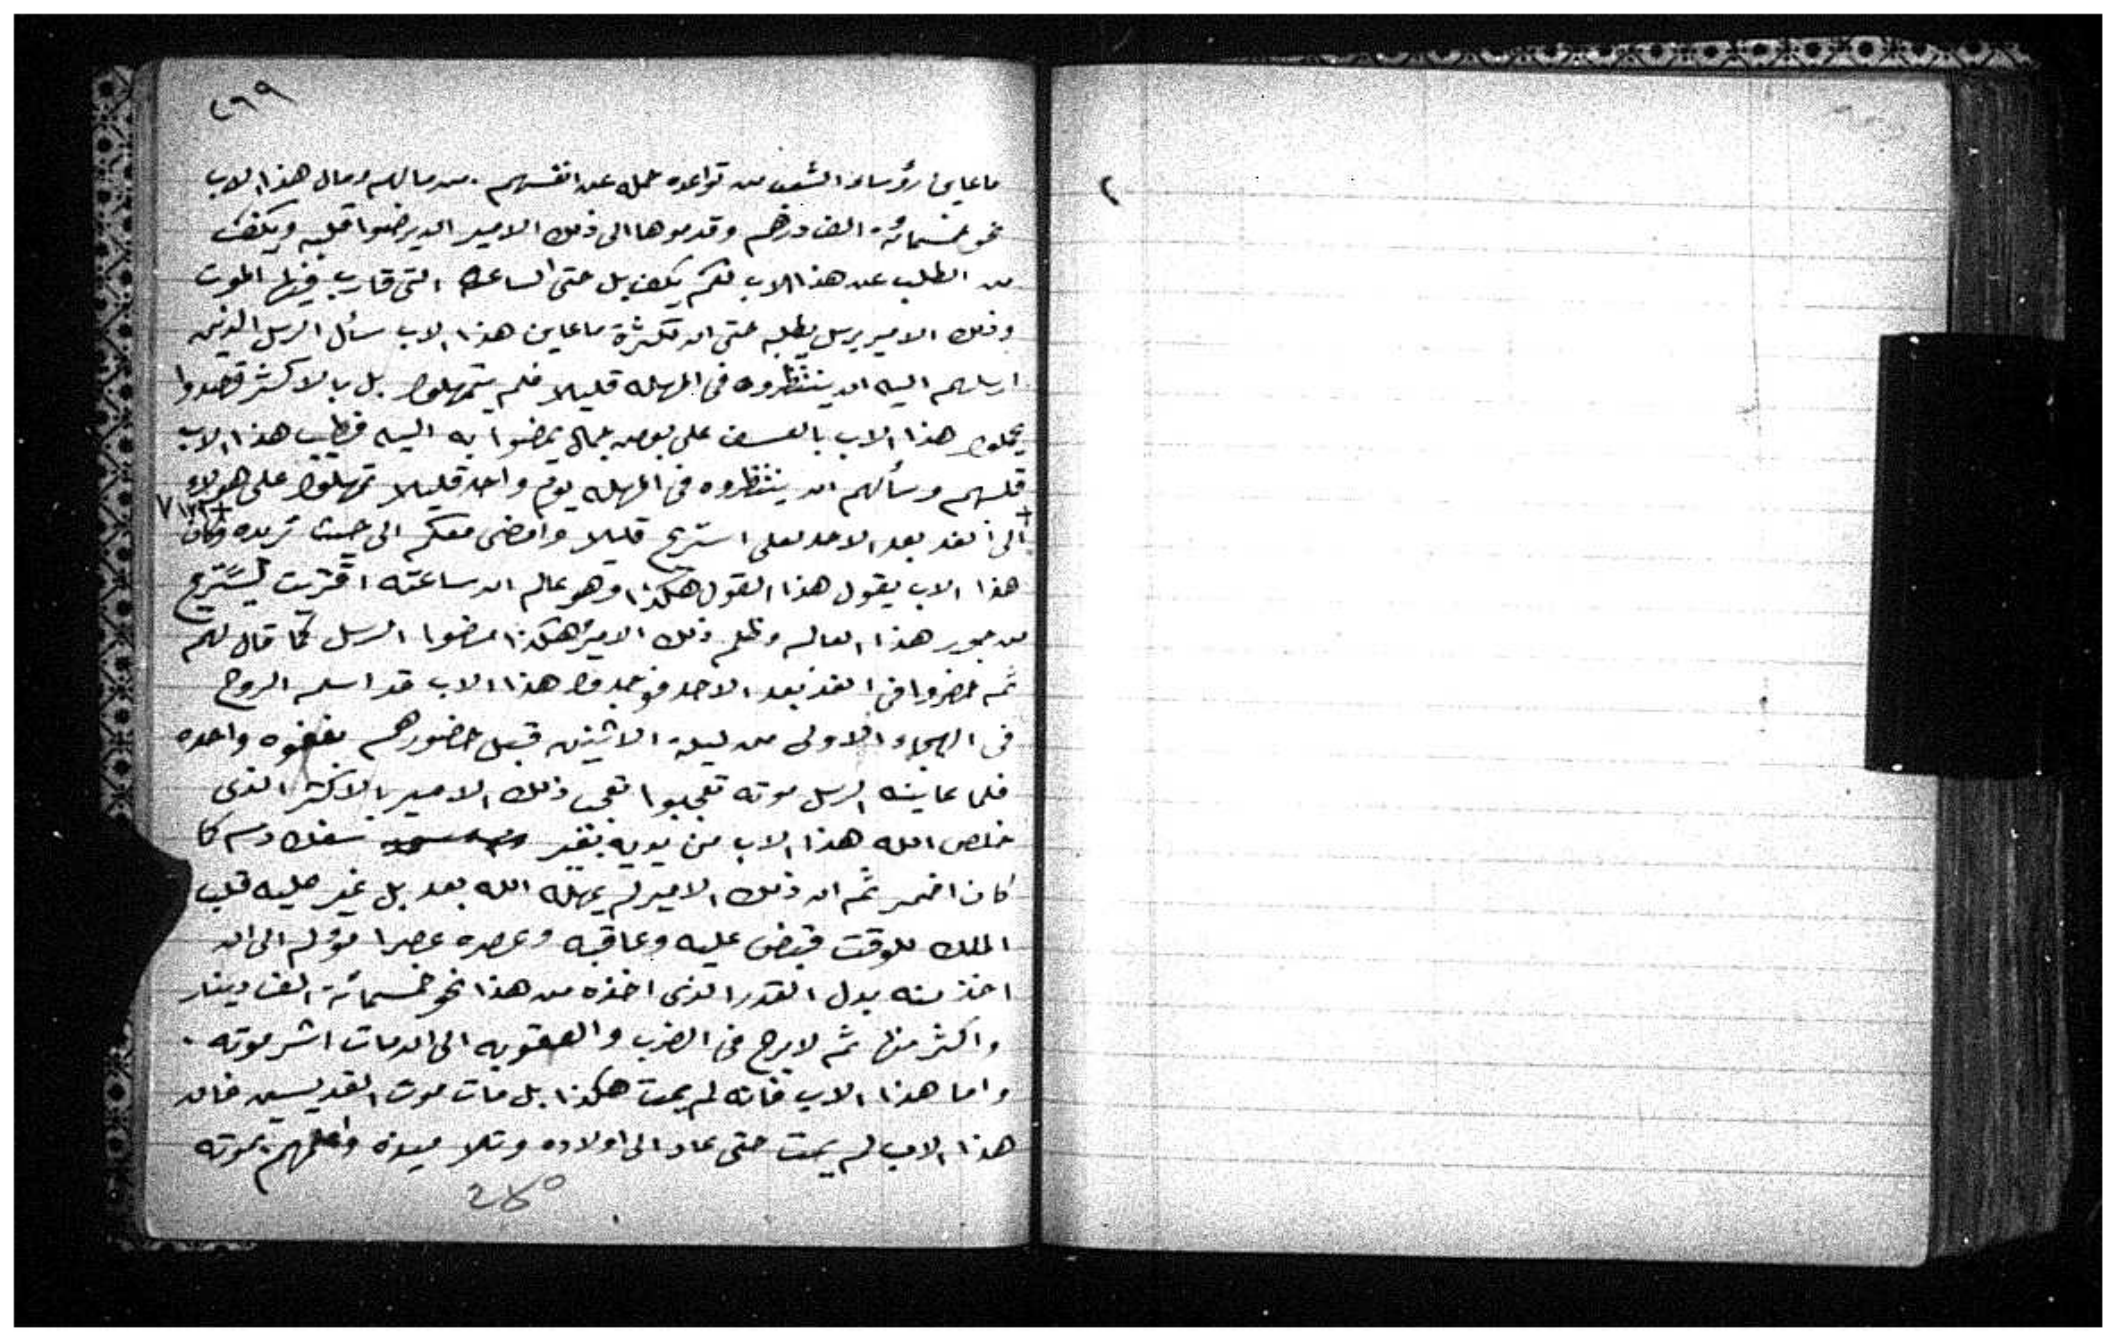 ٢٦٩
ما عاين رؤساء الشعب من تواعده حمله عن انفسهم . من مالهم ومال هذا الاب
نحو خمسمائة الف درهم وقدموها الى ذلك الامير ان يرضوا قلبه ويكف
من الطلب عن هذا الاب فلم يكف بل حتى الساعه التى قارب فيها الموت
وذلك الامير يرسل يطلبه حتى ان لكثرة ما عاين هذا الاب سأل الرسل الذين
ارسلهم اليه ان ينتظروه فى المهله قليلا فلم يتمهلوا بل بالاكثر قصدوا
يحملوا هذا الاب بالعسف على بعض جمال يمضوا به اليه فطيب هذا الاب
قلبهم وسألهم ان ينتظروه فى المهله يوم واحد قليلا تمهلوا على هولاء
الى الغد بعد الاحد لعلى استريح قليلا وامضى معكم الى حيث تريده وكان
هذا الاب يقول هذا القول هكذا وهو عالم ان ساعته اقتربت ليستريح
من جور هذا العالم وظلم ذلك الامير هكذا مضوا الرسل كما قال لهم
ثم حضروا فى الغد بعد الاحد فوجدوا هذا الاب قد اسلم الروح
فى الهجاء الاولى من ليلة الاثنين قبل حضورهم بغفوه واحده
فلما عاينه الرسل موته تعجبوا تعجب ذلك الامير بالاكثر الذى
خلص الله هذا الاب من يديه بغير سفك دم كما
كان اضمر ثم ان ذلك الامير لم يمهله الله بعد بل غير عليه قلب
الملك للوقت قبض عليه وعاقبه وعصره عصرا مؤلم الى ان
اخذ منه بدل القدر الذى اخذه من هذا نحو خمسمائة الف دينار
واكثر منها ثم لا برح فى الضرب والعقوبه الى ان مات اشر موته .
واما هذا الاب فانه لم يمت هكذا بل مات موت القديسين فان
هذا الاب لم يمت حتى عاد الى اولاده وتلاميذه واعلمهم بموته
٢